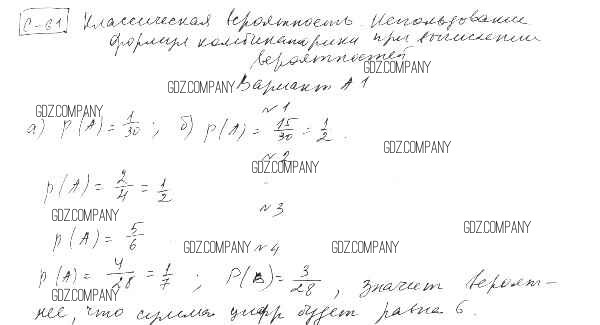 С-61 Классическая вероятность. Использование
формул комбинаторики при вычислении
вероятностей
GDZ.COMPANY
GDZ.COMPANY Вариант А1
№1
GDZ.COMPANY
а) p(A) = 1/30 ; б) p(A) = 15/30 = 1/2 .
GDZ.COMPANY
№2
GDZ.COMPANY
p(A) = 2/4 = 1/2
№3
GDZ.COMPANY
p(A) = 5/6
GDZ.COMPANY
GDZ.COMPANY №4 GDZ.COMPANY
p(A) = 4/28 = 1/7 ; P(B) = 3/28 , значит вероят-
GDZ.COMPANY
нее, что сумма цифр будет равна 6.